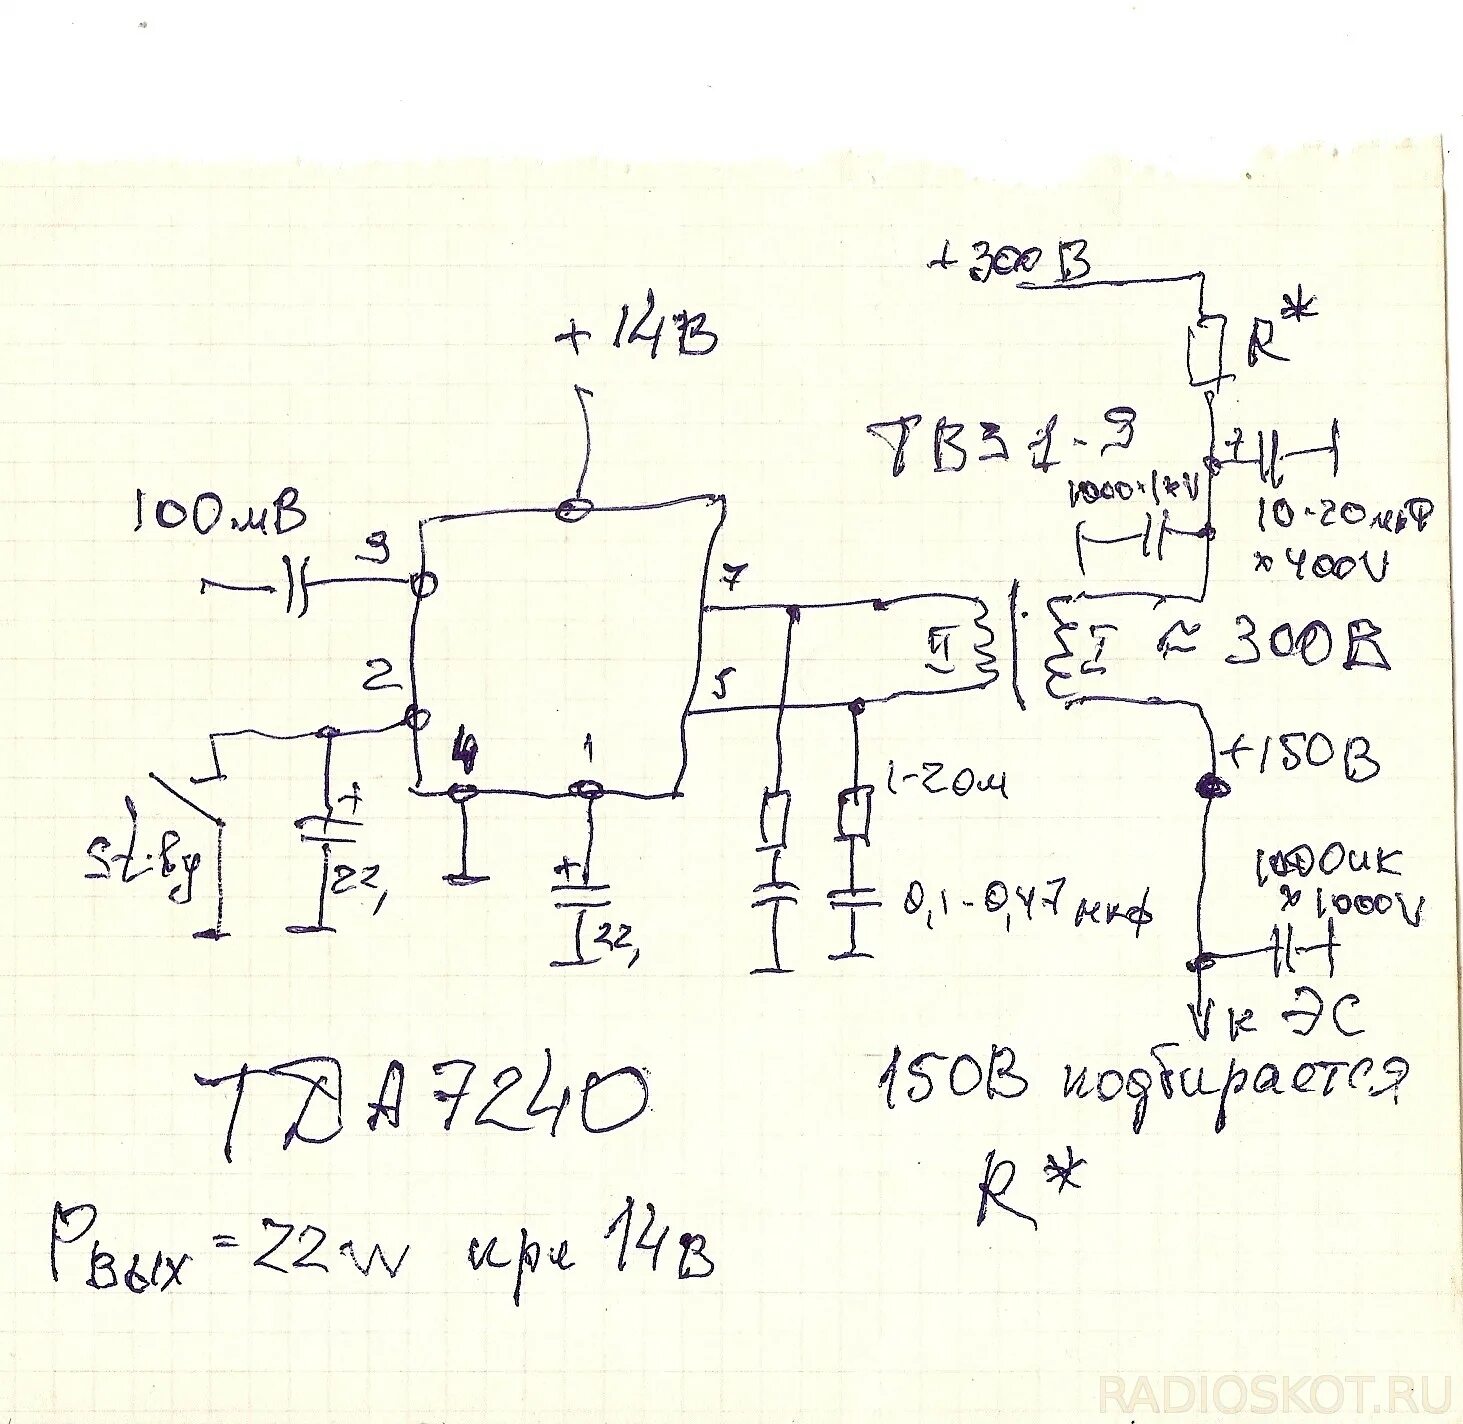 +300В
R*
+14В
ТВЗ 1-9
1000×1кV
10-20мкф
×400V
100мВ
3
2
7
5
II
I
≈ 300В
4
1
+150В
1-2Ом
St-by
+
22,
+
22,
0,1-0,47мкф
1000пк
×1000V
к ЭС
TDA7240
150В подбирается
R*
Pвых=22w при 14В
RADIOSKOT.RU